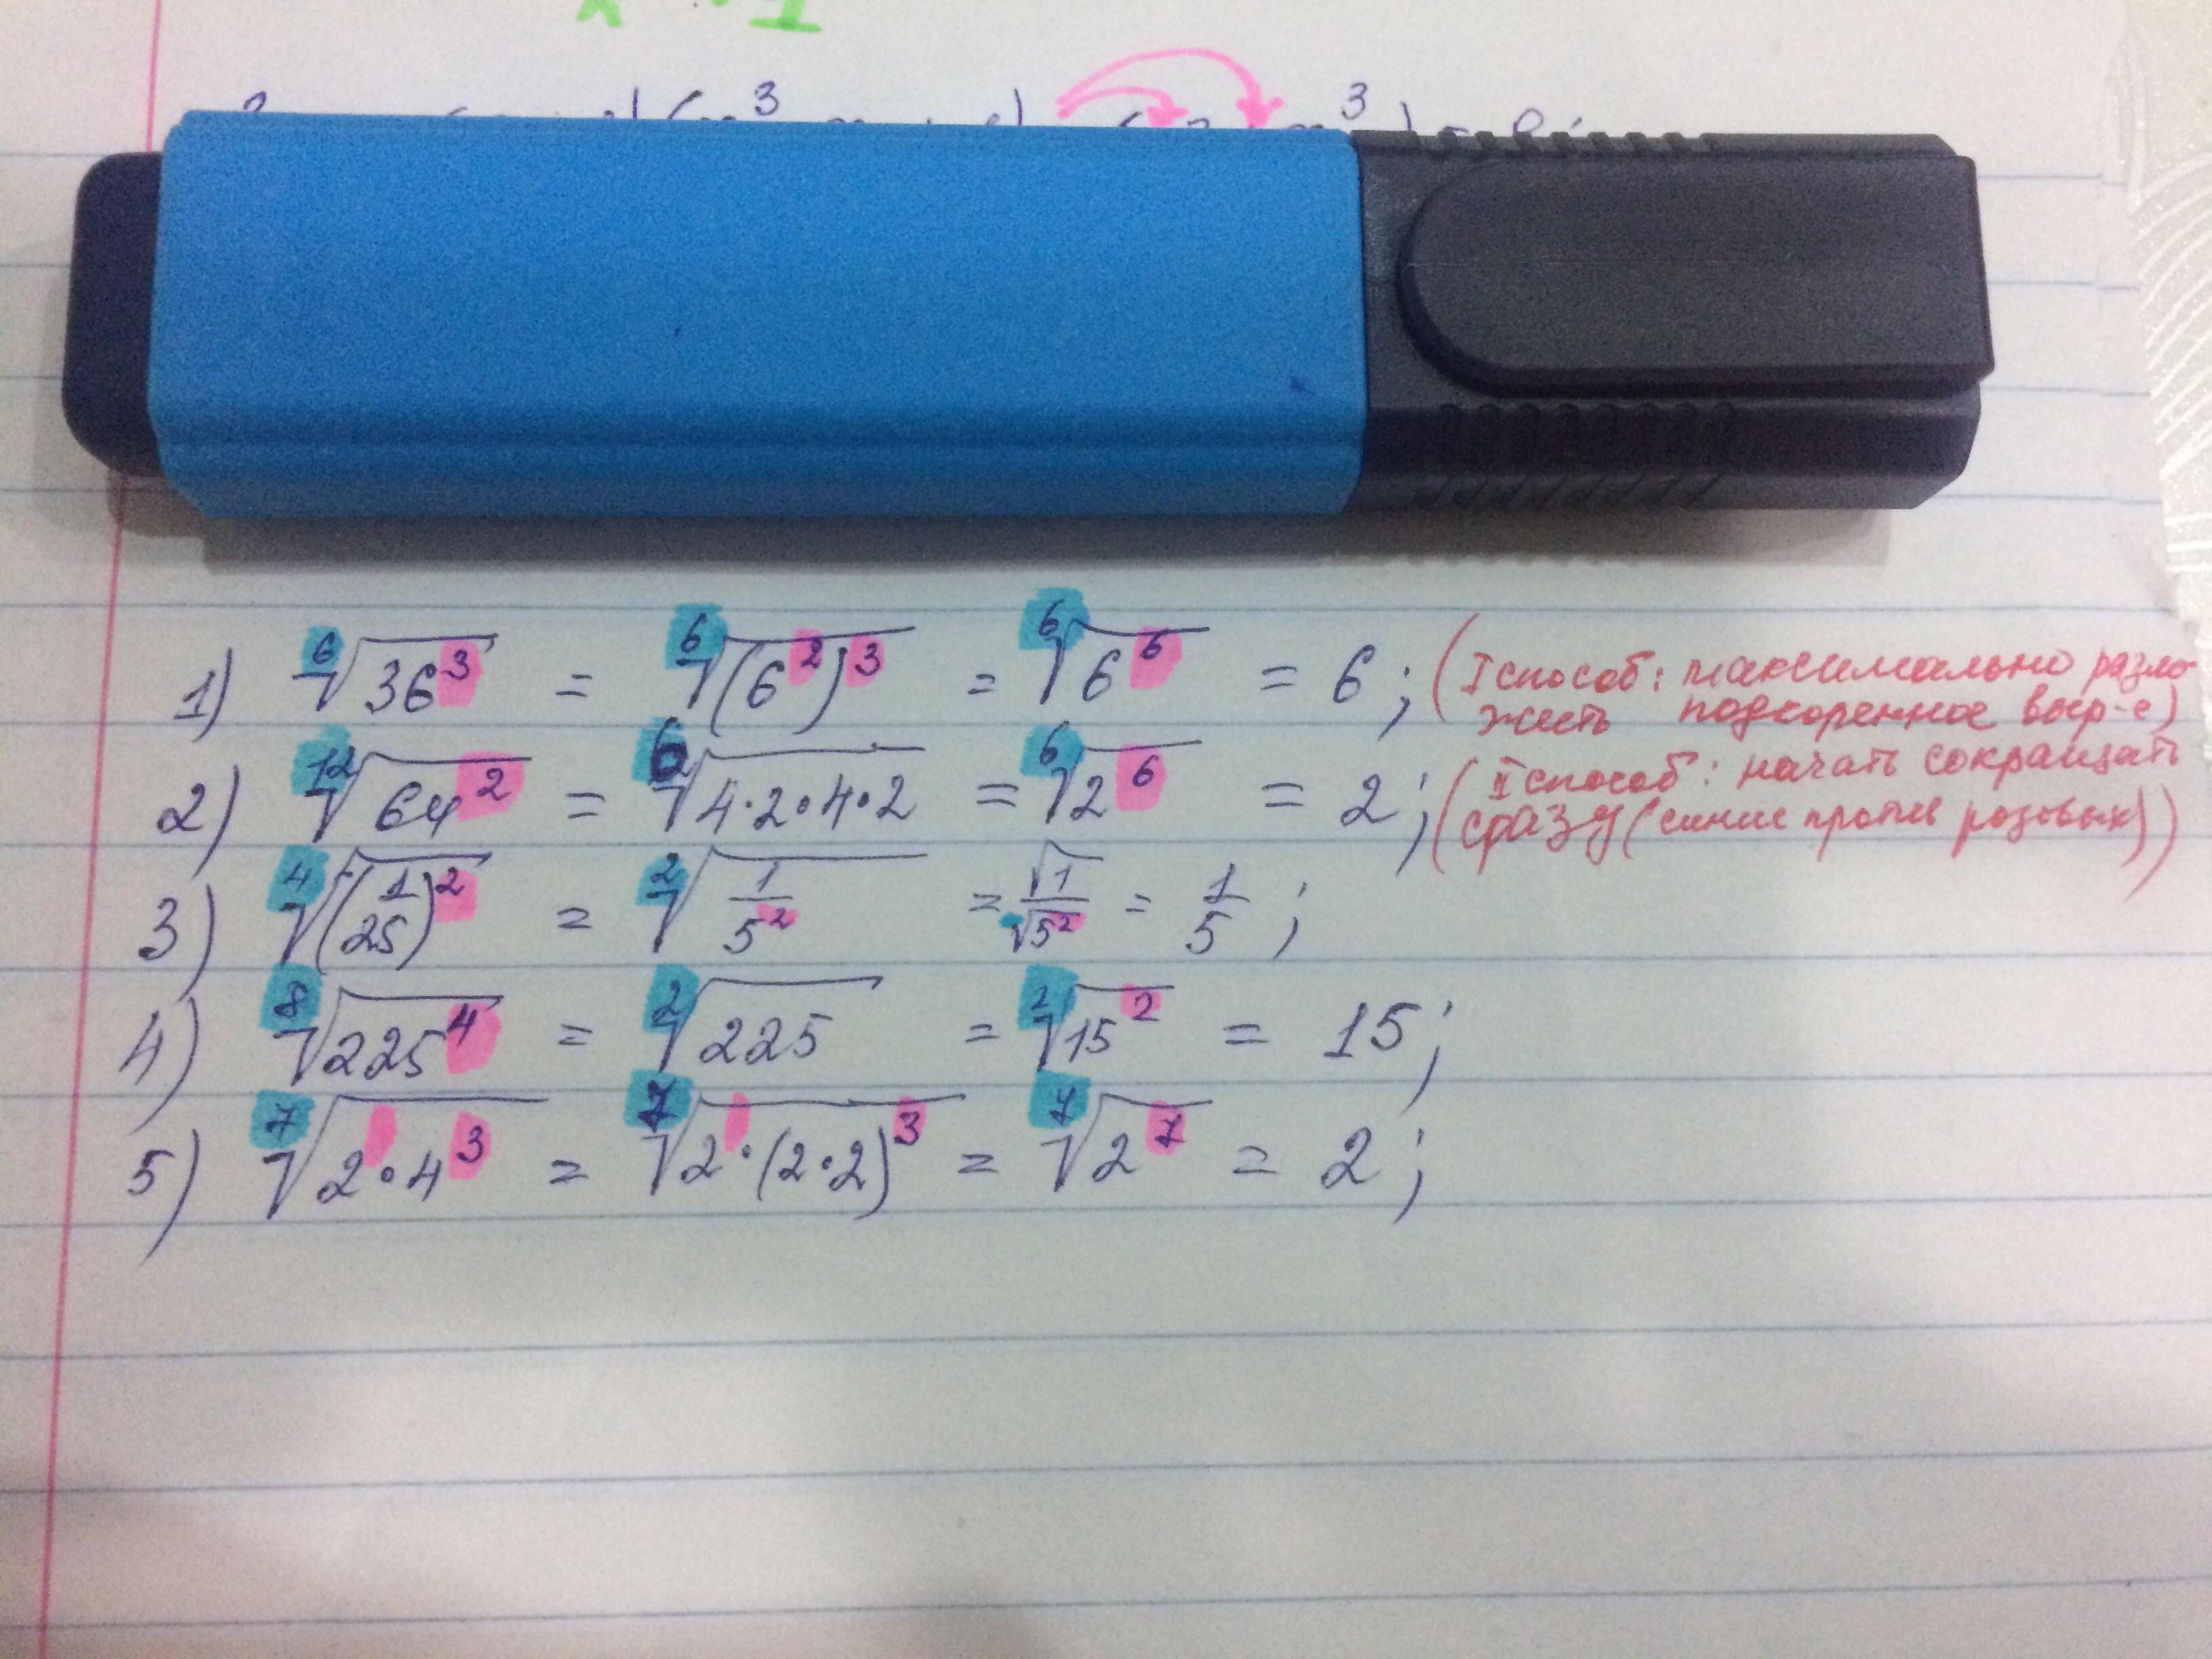 1) ⁶√36³ = ⁶√(6²)³ = ⁶√6⁶ = 6; (I способ: максимально разло
жить подкоренное выр-е)
2) ¹²√64² = ⁶√4·2·4·2 = ⁶√2⁶ = 2; (II способ: начать сокращать
сразу (синие против розовых))
3) ⁴√(1/25)² = ²√1/5² = √1/√5² = 1/5;
4) ⁸√225⁴ = ²√225 = ²√15² = 15;
5) ⁷√2·4³ = ⁷√2·(2·2)³ = ⁷√2⁷ = 2;